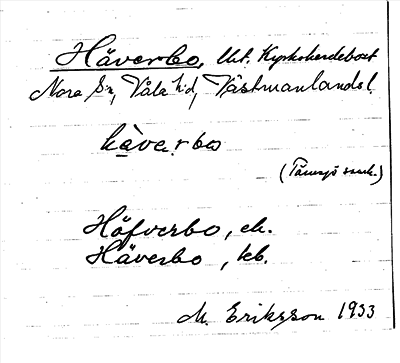 Häverbo, hht. Kyrkoherdebost
Nora sn, Våla hd, Västmanlands l.
hàve.rbo
(Tärnsjö samh.)
Höfverbo, ek.
Häverbo, kb.
M. Eriksson 1933